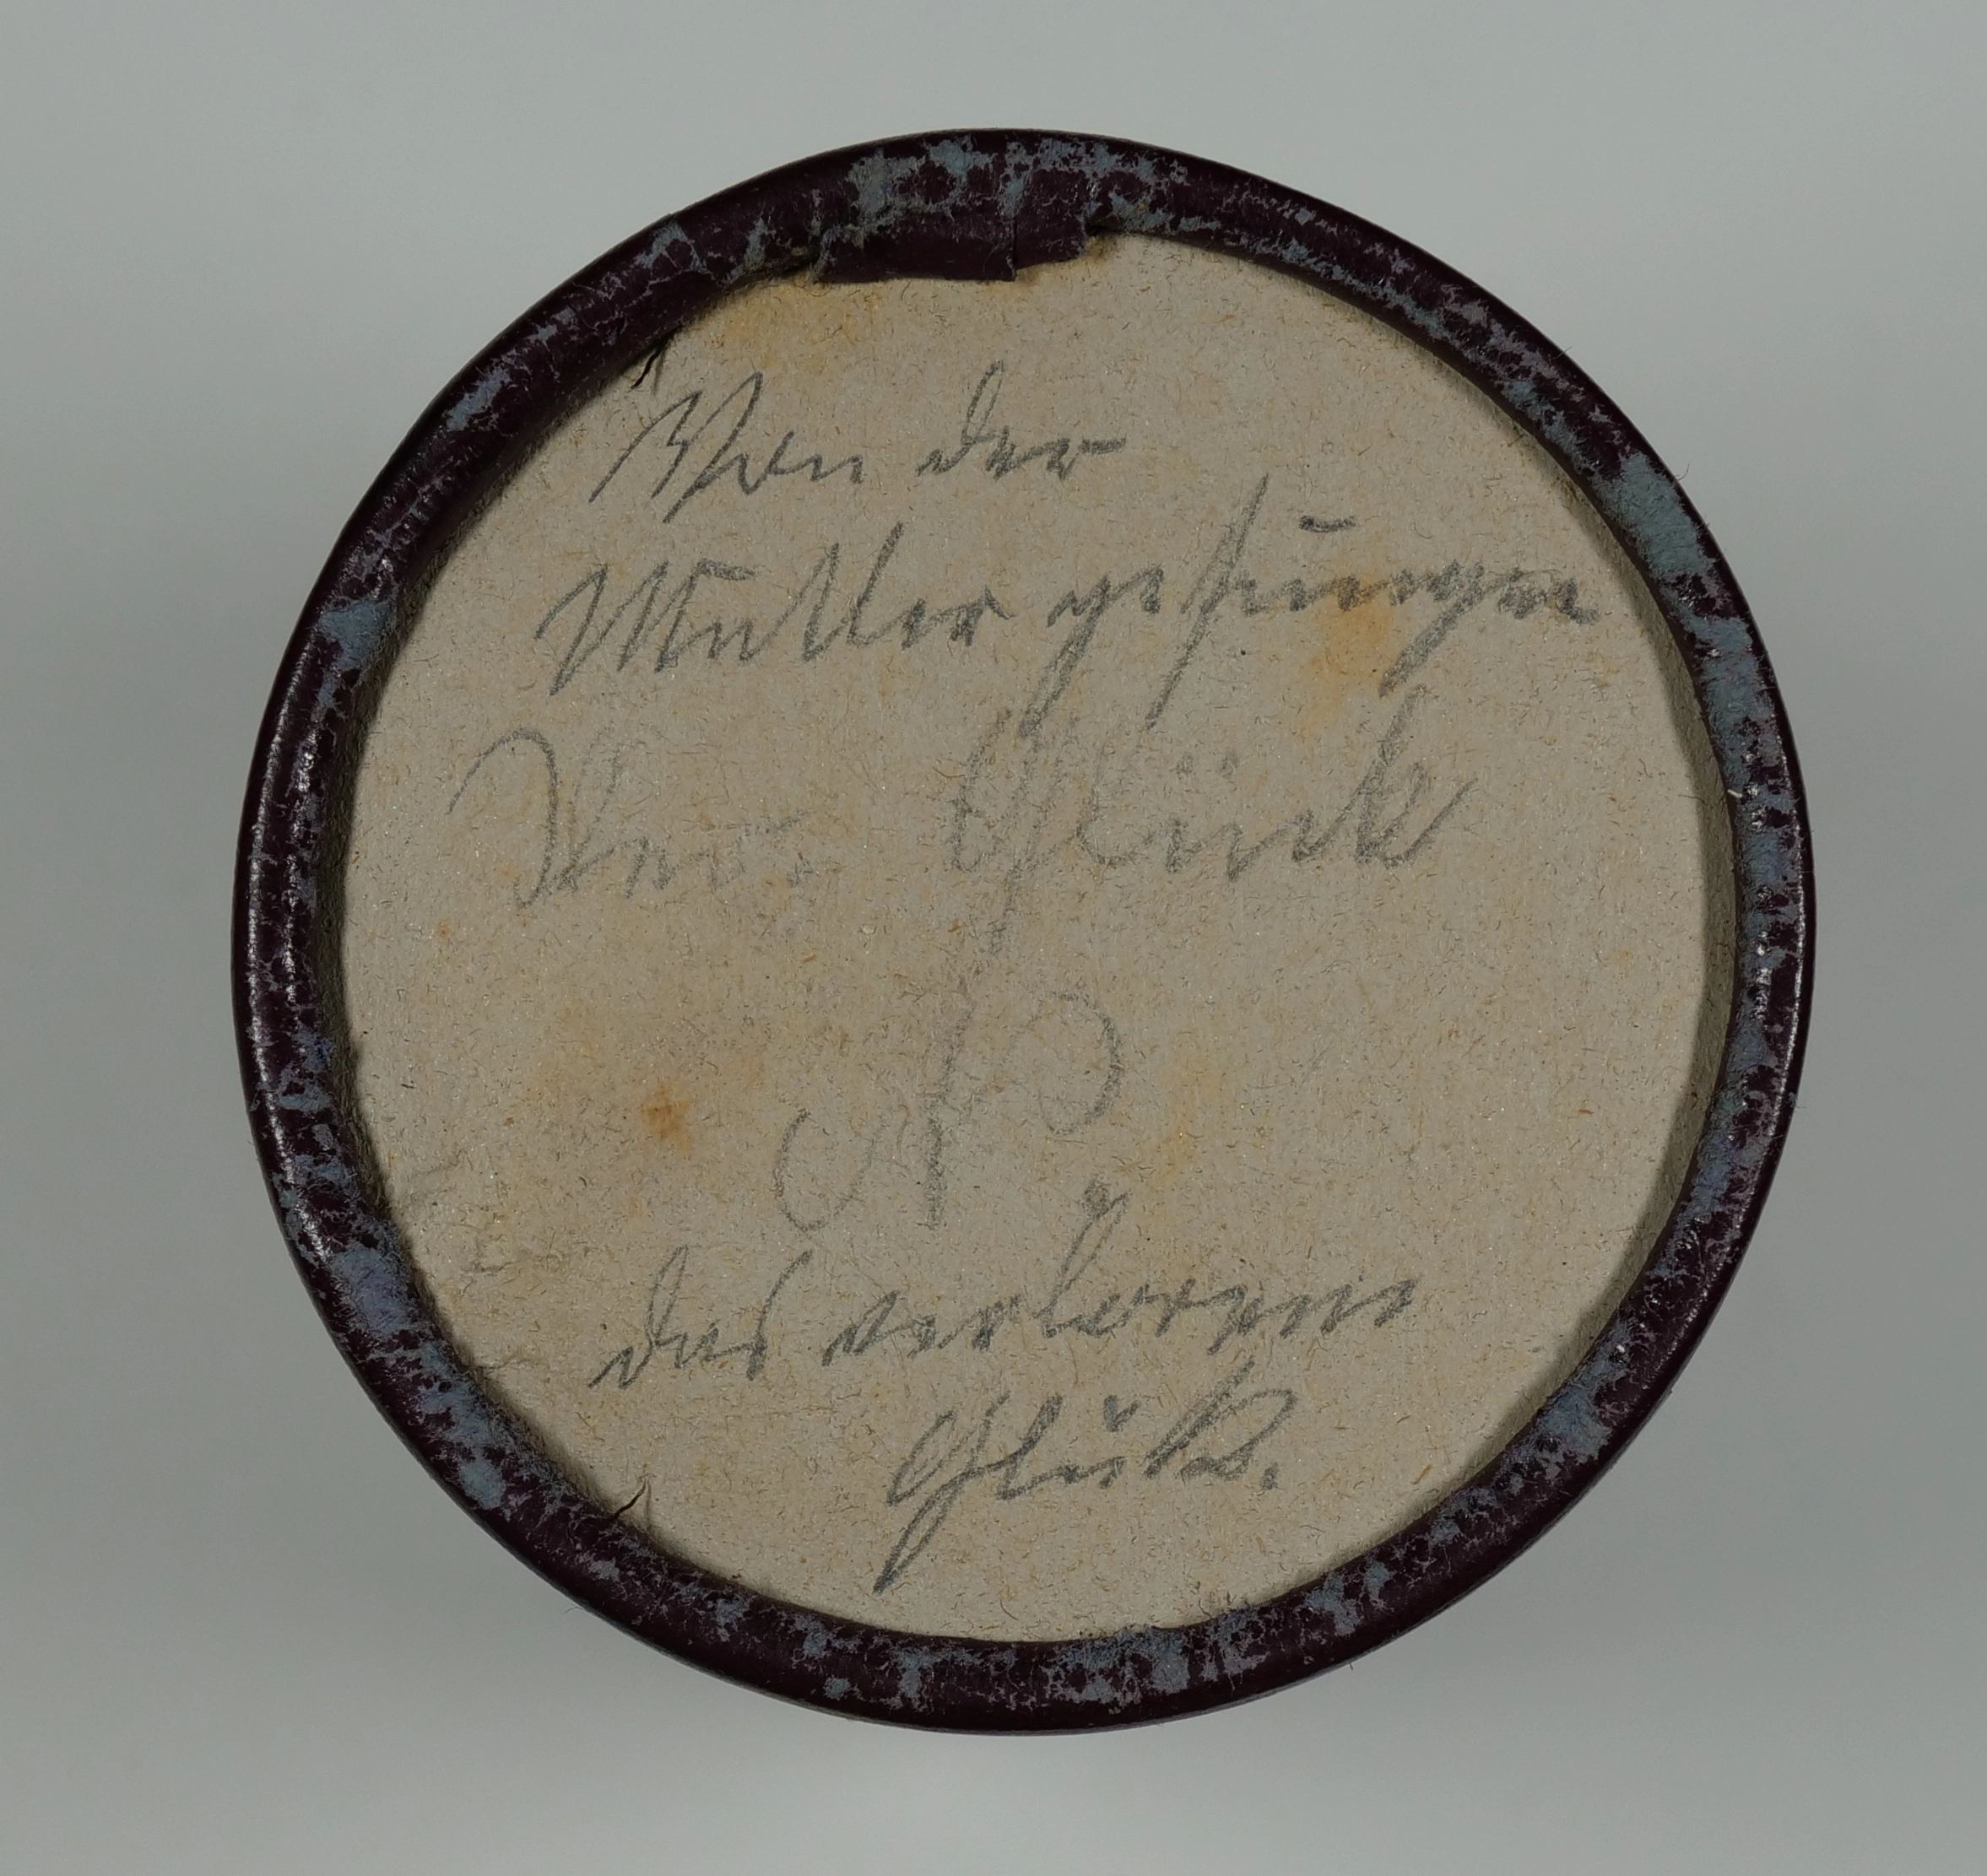 Von der
Mutter gesungen
Verl. Glück
das verlorene
Glück.